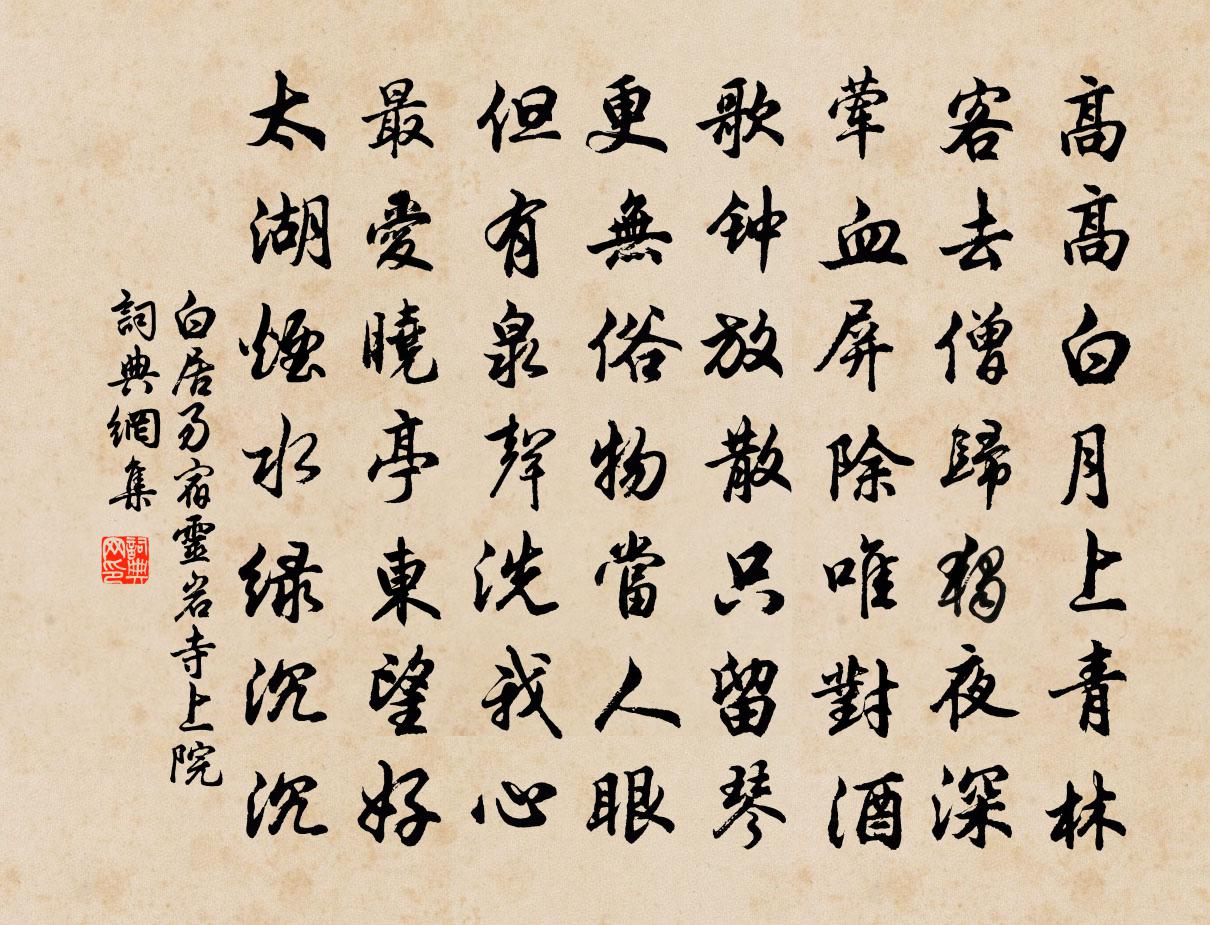 高高白月上青林
客去僧歸獨夜深
荤血屏除唯對酒
歌钟放散只留琴
更無俗物當人眼
但有泉聲洗我心
最愛曉亭東望好
太湖煙水绿沉沉
白居易宿靈岩寺上院
詞典網集
詞典
网印